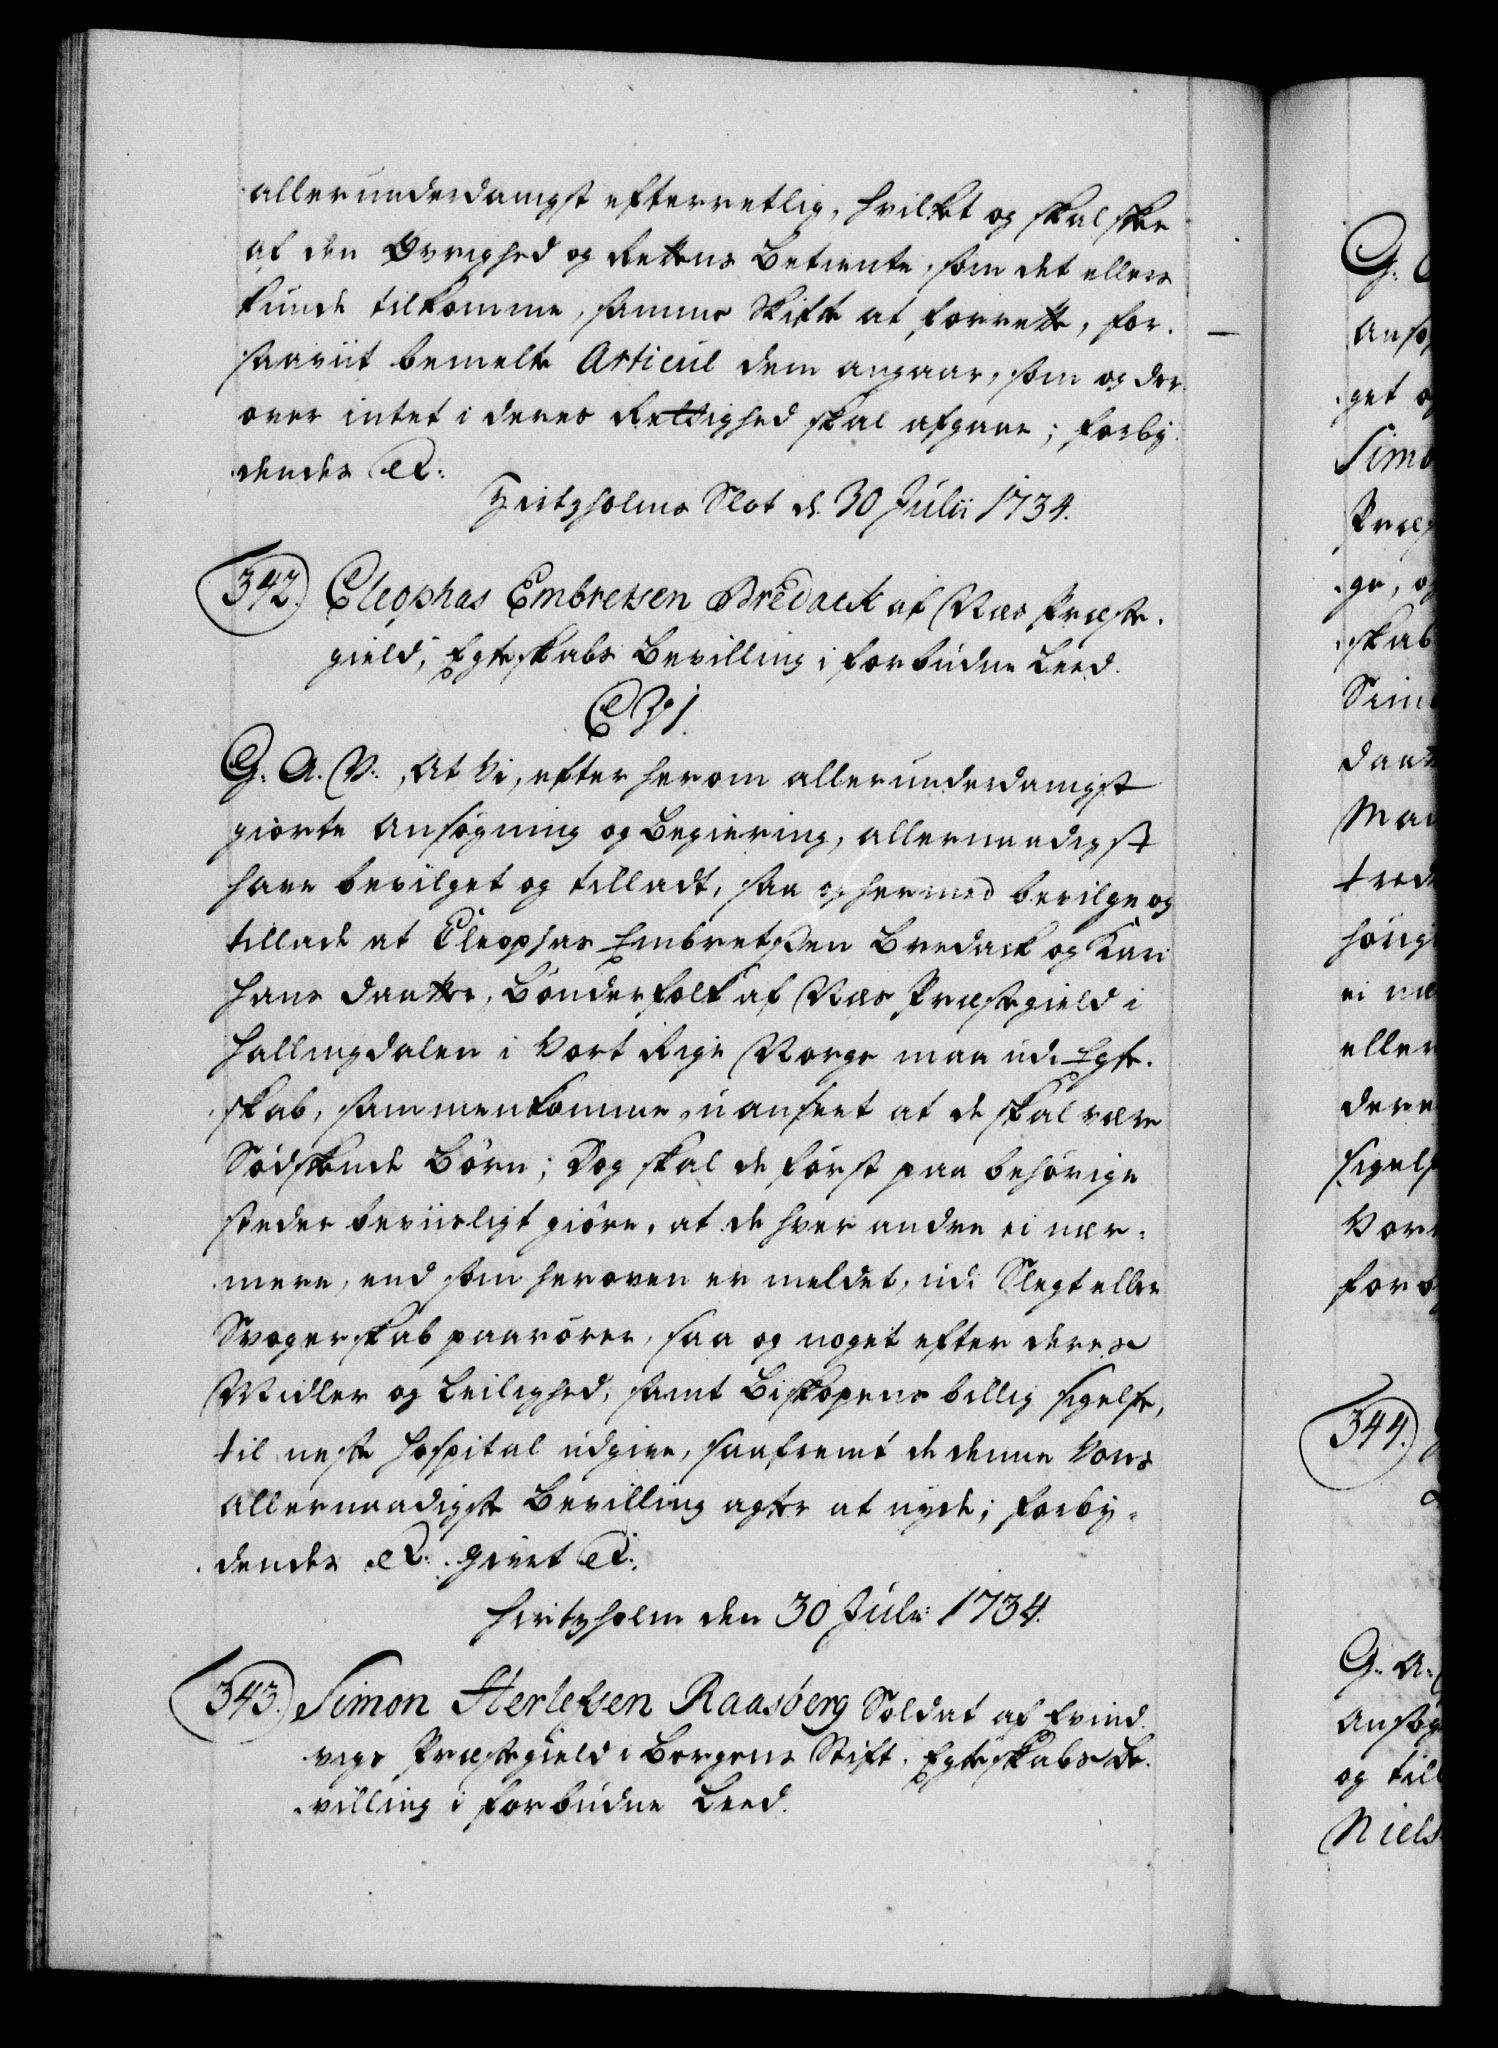 allerunderdanigst efterretlig, hvilket og skal skee
af den Øvrighed og Rettens Betiente, som det ellers
kunde tilkomme, samme Skifte at forrette, for-
saaviit bemelte Articul dem angaar, som og der-
over intet i deres Rettighed skal afgaae; forby-
dendes etc:
Hirtzholms Slot d. 30 Julii 1734.
342. Eleophas Embretsen Bredack af Næs Præste-
gield, Egteskabs Bevilling i forbudne Leed.
C VI.
G. A. V., At Vi, efter herom allerunderdanigst
giorte Ansøgning og Begiering, allernaadigst
have bevilget og tilladt, saa og hermed bevilge og
tillade at Eleophas Embretzen Bredack og Kari
Hans Daatter, Bønderfolk af Næs Præstegield i
Hallingdalen i Vort Rige Norge maa udi Egte-
skab, sammenkomme, uanseet at de skal være
Sødskende Børn; Dog skal de først paa behørige
steder beviisligt giøre, at de hver andre ei nær-
mere, end som heroven er meldet, udi Slegt eller
Svogerskab paarører, saa og noget efter deres
Midler og Leilighed, samt Biskopens billig sigelse,
til neste Hospital udgive, saafremt de denne Vores
allernaadigste Bevilling agter at nyde; forby-
dendes etc: givet etc:
Hirtzholm den 30 Julii 1734.
343. Simon Herlefsen Raasberg Soldat af Evind-
vigs Præstegield i Bergens Stift, Egteskabs Be-
villing i forbudne Leed.
G.
Anso
get o
Simo
Præs
ge, og
skab
Sim
daat
Mar
træd
hørig
ei næ
eller
dere
sigels
Vor
forb
344.
G. A.
Ansøg
og till
Niels